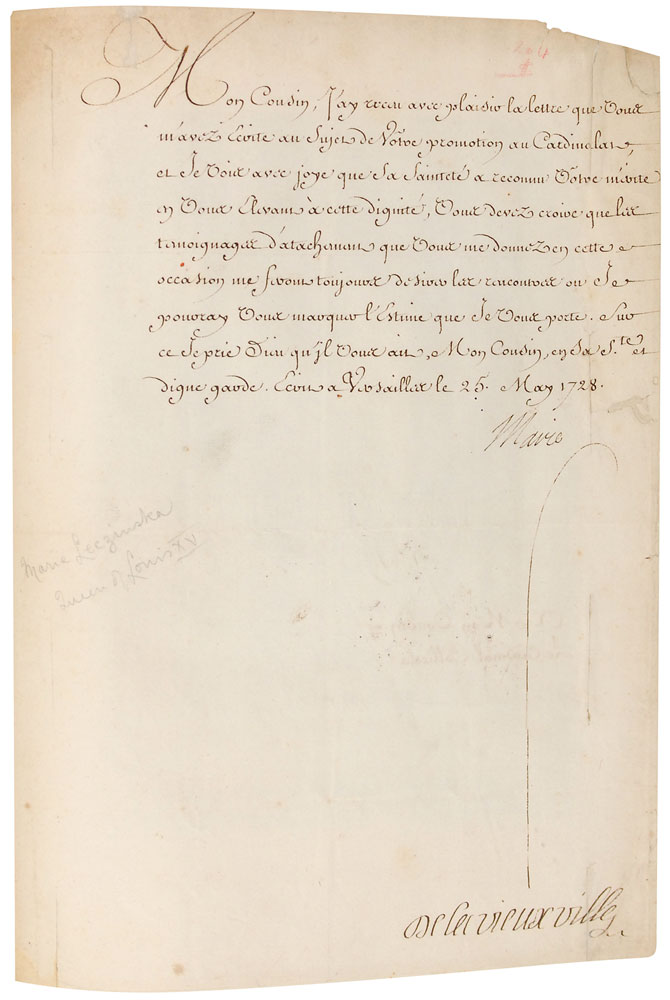 Mon Cousin, J'ay receu avec plaisir la lettre que Vous
m'avez Ecrite au Sujet de Votre promotion au Cardinalat,
et Je Vois avec joye que Sa Sainteté a reconnu Votre mérite
en Vous Elevant à cette dignité, Vous devez croire que les
temoignages d'atachement que Vous me donnez en cette
occasion me feront toujours desirer les rencontres ou Je
pourray Vous marquer l'Estime que Je Vous porte. Sur
ce Je prie Dieu qu'il Vous ait, Mon Cousin, en Sa S.te et
digne garde. Ecrit a Versailles le 25. May 1728.
Marie
Marie Leczinska
Queen of Louis XV
De la vieuxville